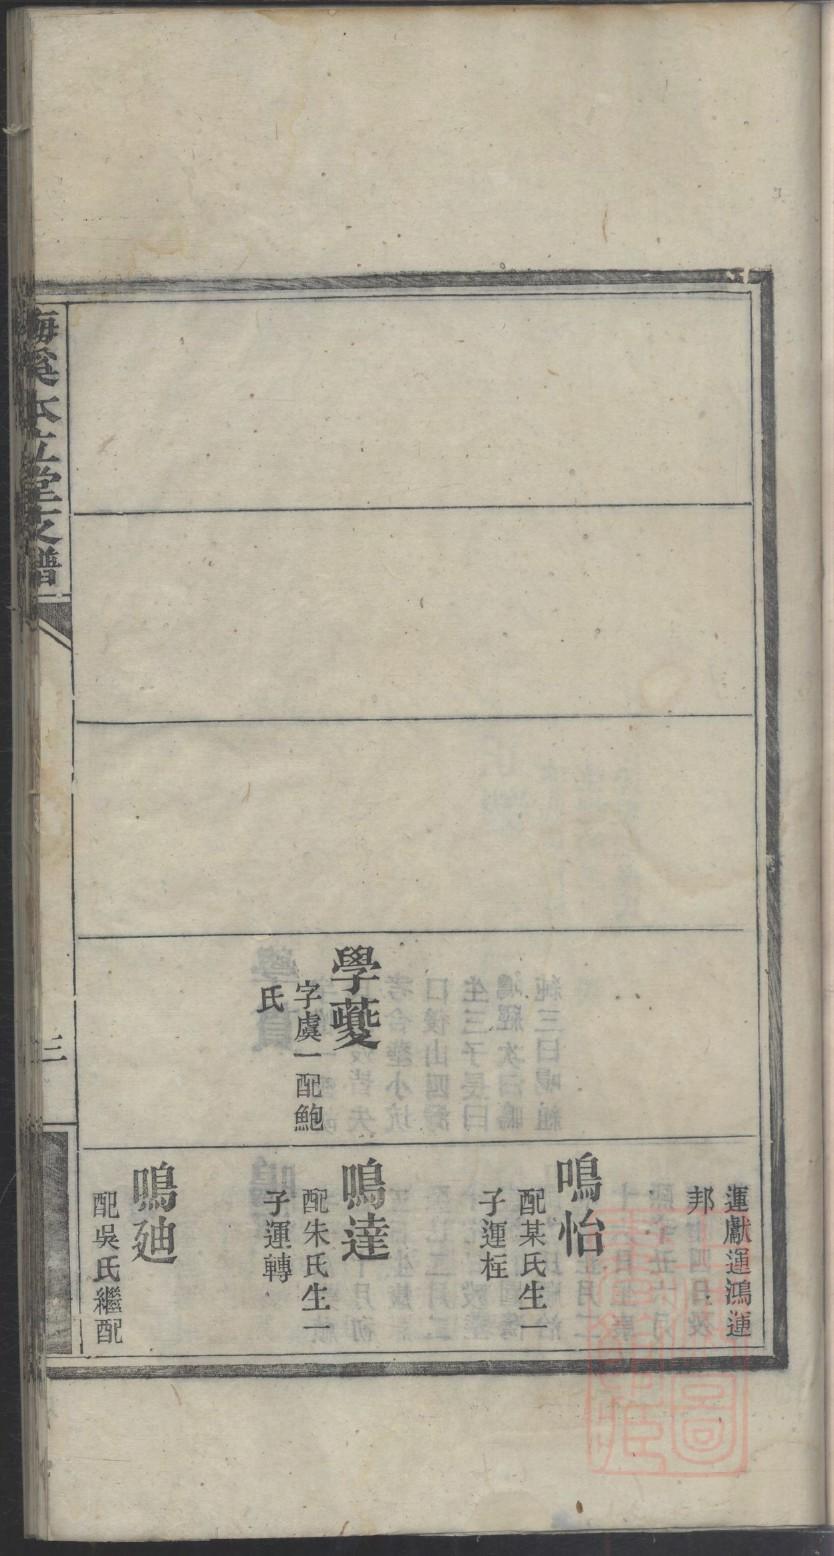 學夔
字虞一配鮑
氏
運獻運鴻運
邦
鳴怡
配某氏生一
子運桂
鳴達
配朱氏生一
子運轉
鳴廸
配吳氏繼配
梅溪本立堂支譜
三